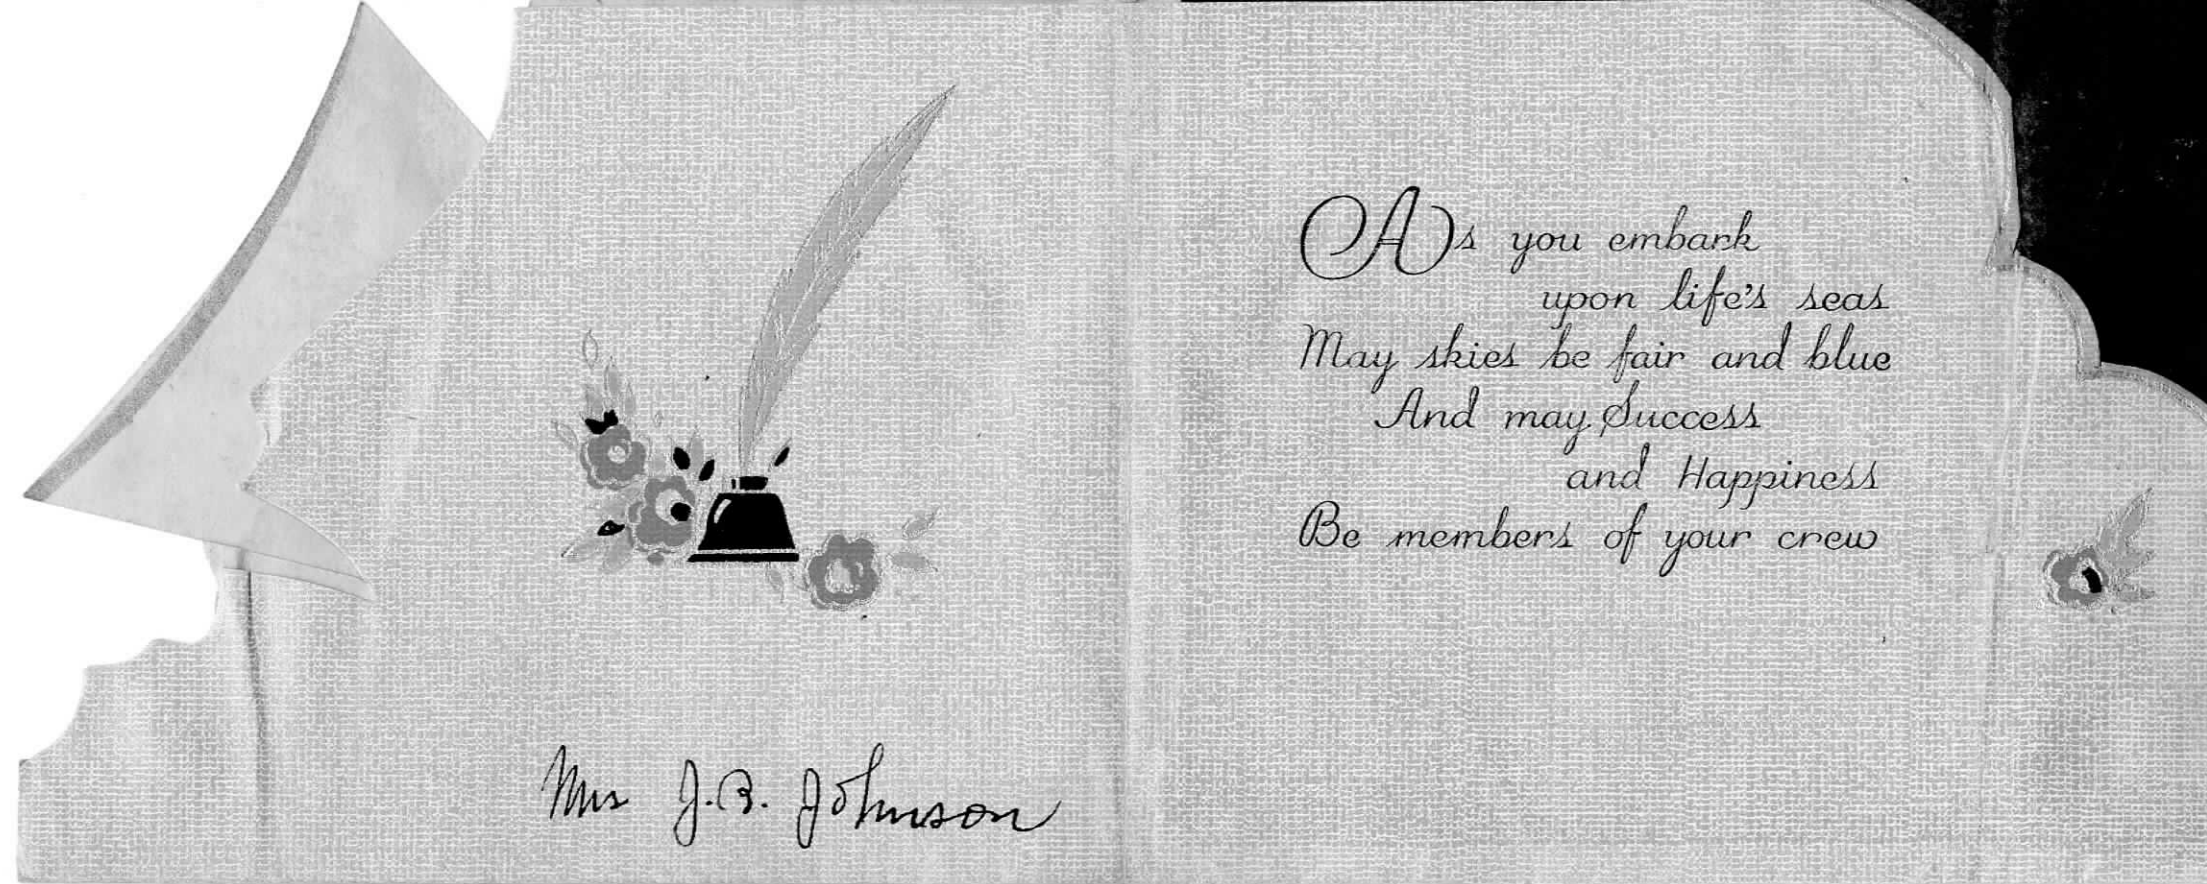 Mrs J. B. Johnson
As you embark
upon life's seas
May skies be fair and blue
And may Success
and Happiness
Be members of your crew